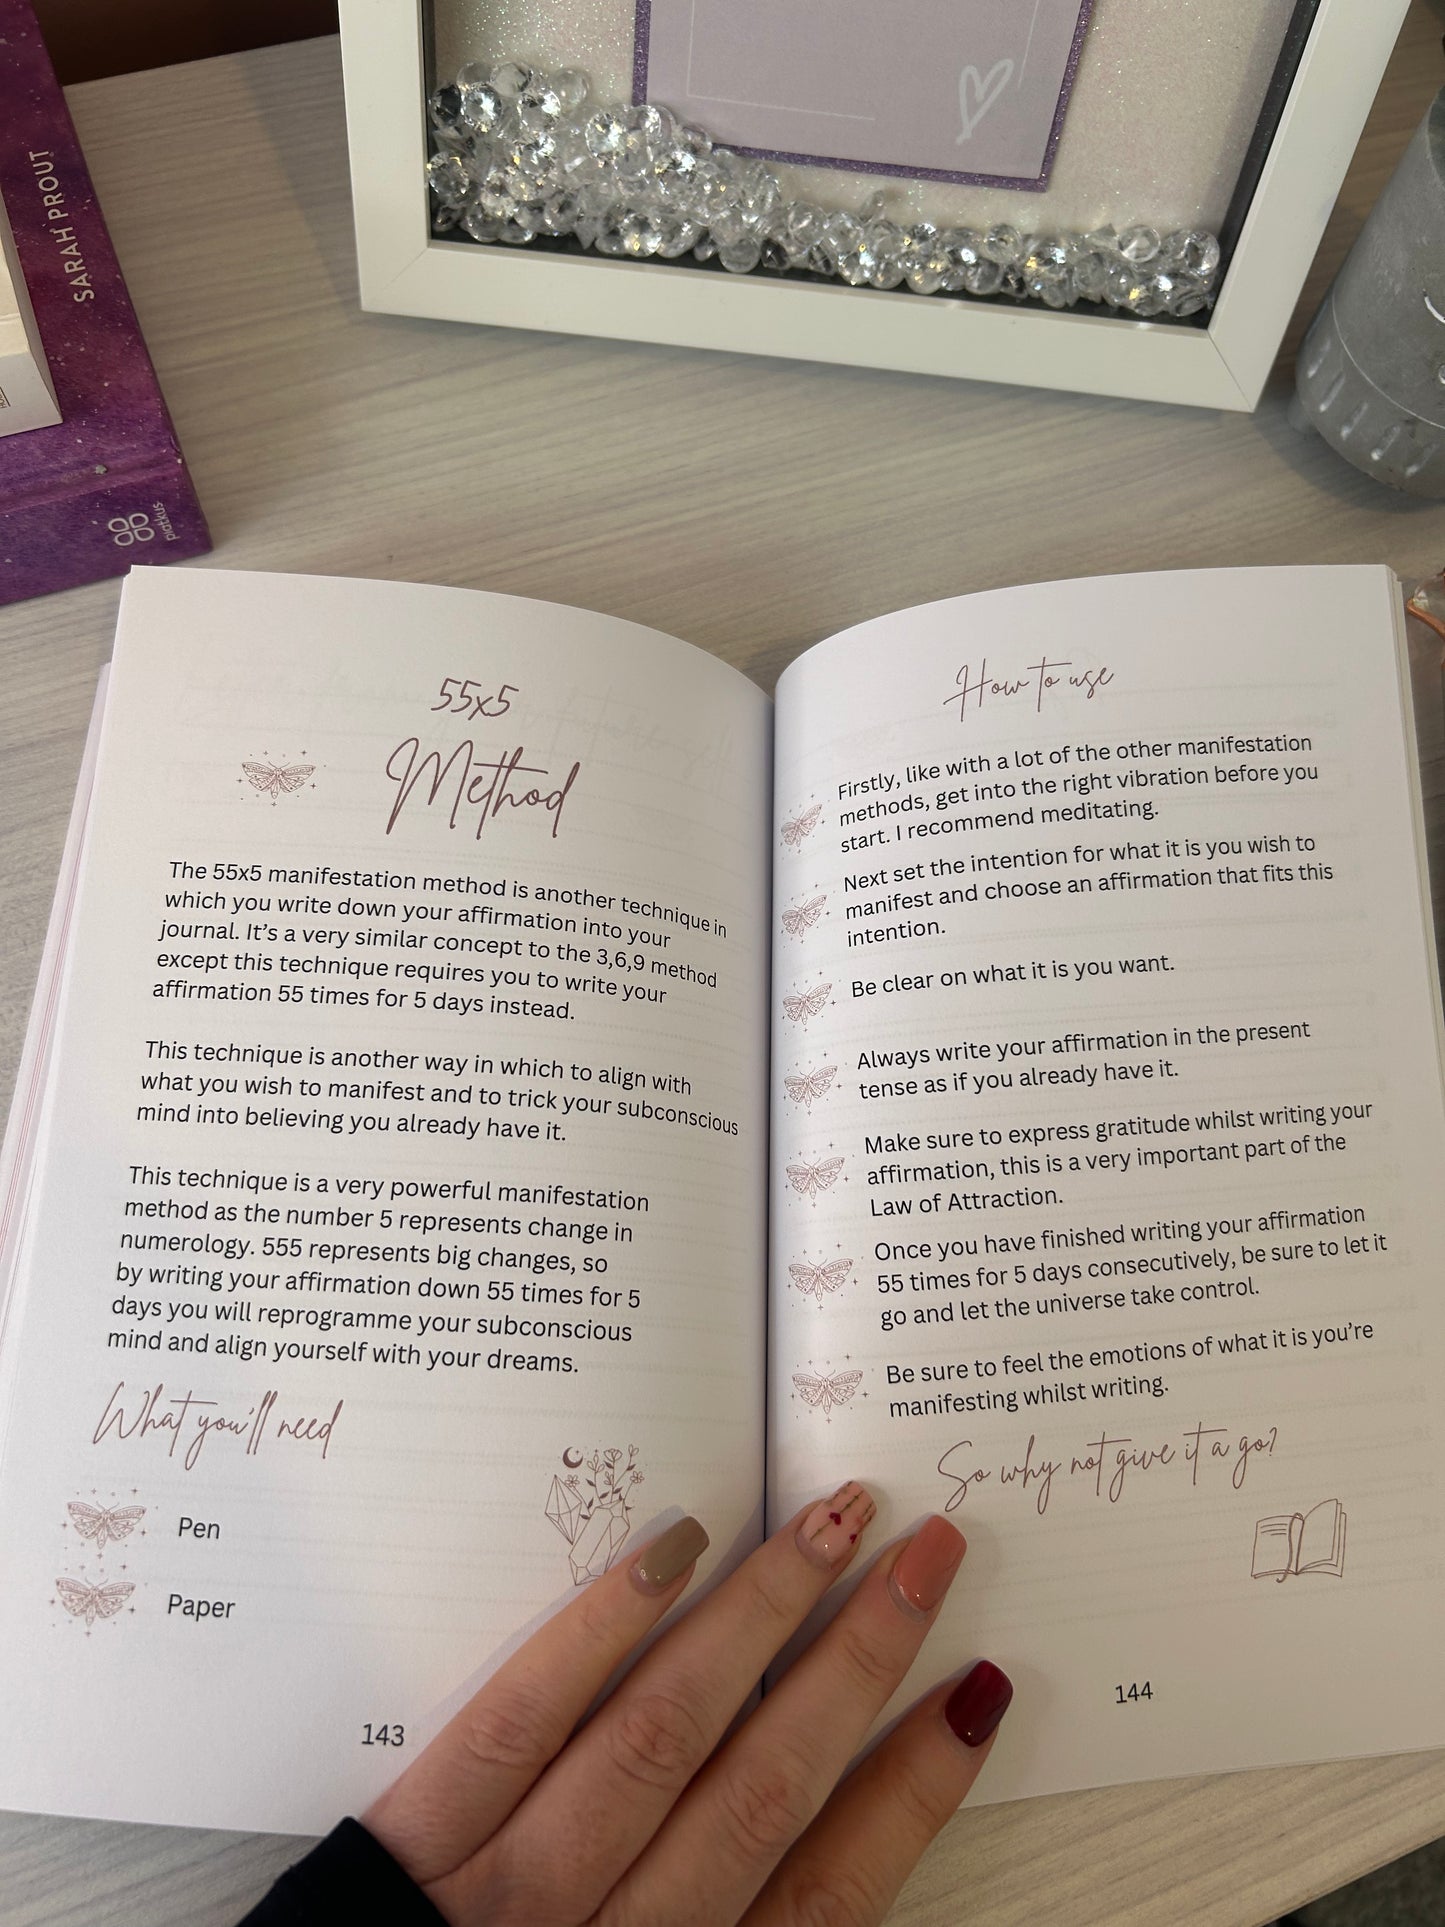 SARAH PROUT
piatkus
55x5
Method
The 55x5 manifestation method is another technique in
which you write down your affirmation into your
journal. It's a very similar concept to the 3,6,9 method
except this technique requires you to write your
affirmation 55 times for 5 days instead.
This technique is another way in which to align with
what you wish to manifest and to trick your subconscious
mind into believing you already have it.
This technique is a very powerful manifestation
method as the number 5 represents change in
numerology. 555 represents big changes, so
by writing your affirmation down 55 times for 5
days you will reprogramme your subconscious
mind and align yourself with your dreams.
What you'll need
Pen
Paper
143
How to use
Firstly, like with a lot of the other manifestation
methods, get into the right vibration before you
start. I recommend meditating.
Next set the intention for what it is you wish to
manifest and choose an affirmation that fits this
intention.
Be clear on what it is you want.
Always write your affirmation in the present
tense as if you already have it.
Make sure to express gratitude whilst writing your
affirmation, this is a very important part of the
Law of Attraction.
Once you have finished writing your affirmation
55 times for 5 days consecutively, be sure to let it
go and let the universe take control.
Be sure to feel the emotions of what it is you're
manifesting whilst writing.
So why not give it a go?
144